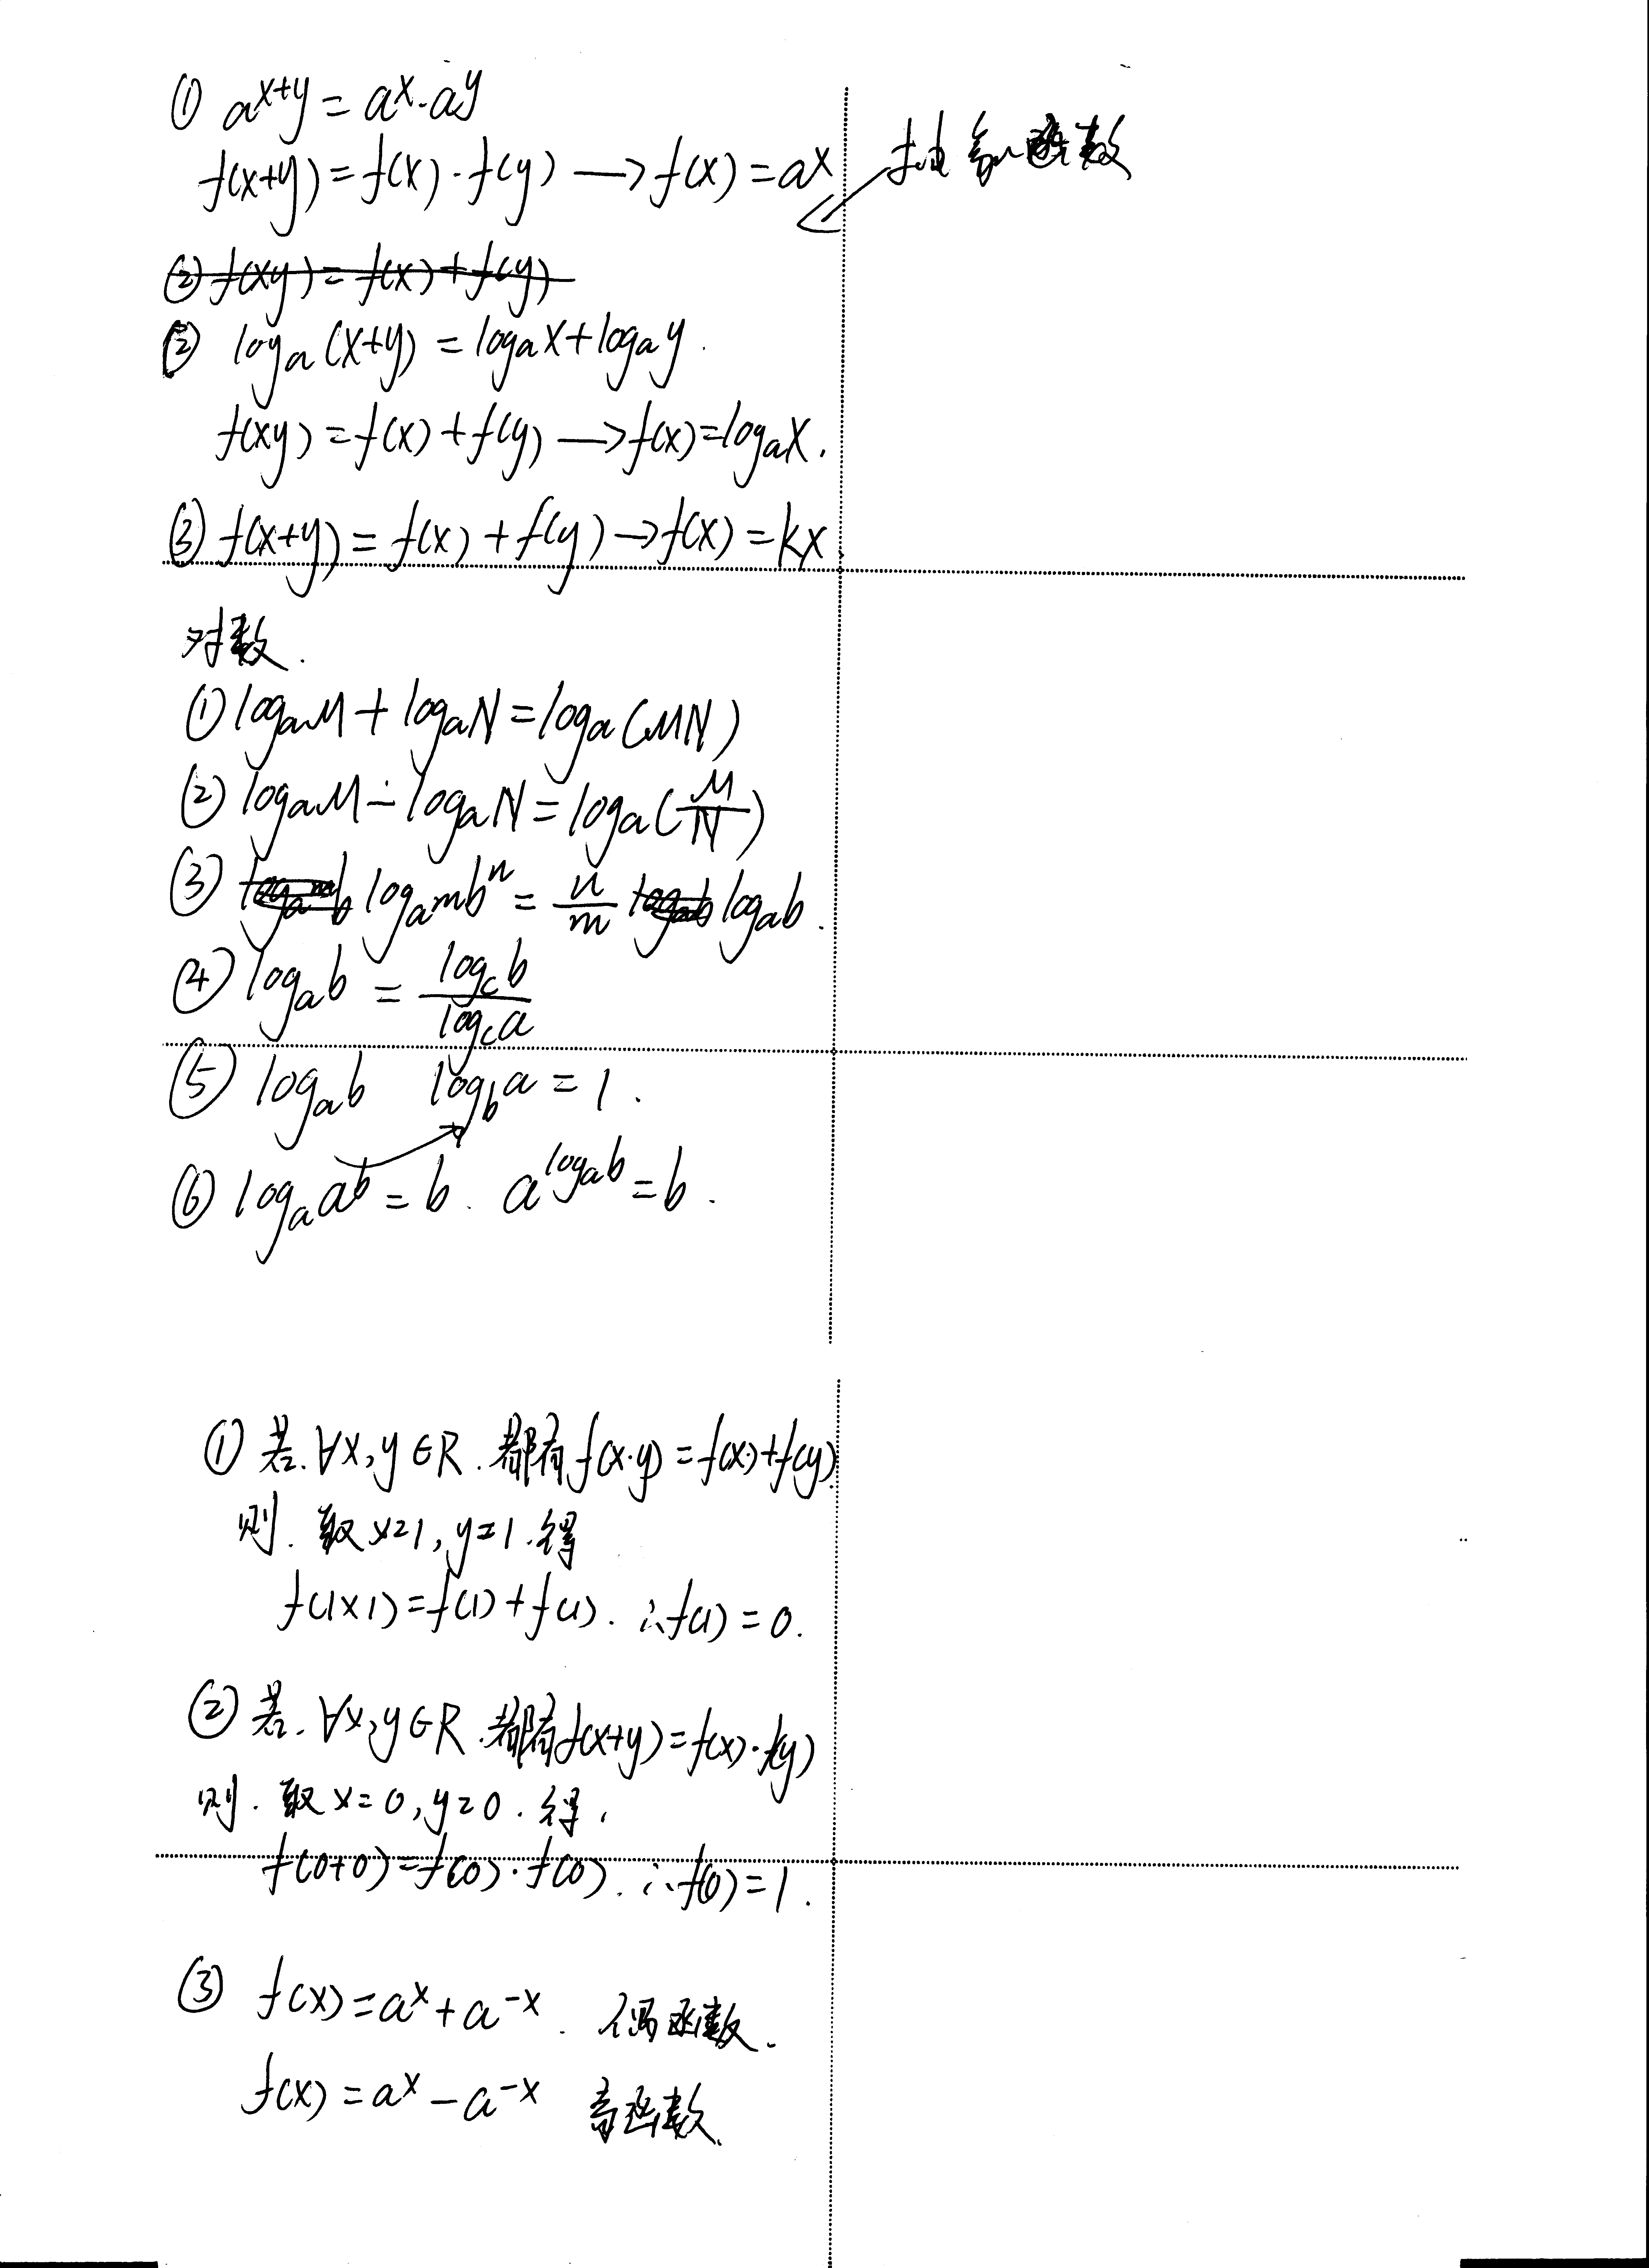 ① a^{x+y} = a^x · a^y
f(x+y) = f(x) · f(y) → f(x) = a^x
抽象函数
② f(xy) = f(x) + f(y)
② log_a(x+y) = log_a x + log_a y.
f(xy) = f(x) + f(y) → f(x) = log_a x.
③ f(x+y) = f(x) + f(y) → f(x) = kx.
对数.
① log_a M + log_a N = log_a(MN)
② log_a M - log_a N = log_a(M/N)
③ log_{a^m} b^n = n/m log_a b.
④ log_a b = log_c b / log_c a
⑤ log_a b log_b a = 1.
⑥ log_a a^b = b. a^{log_a b} = b.
① 若. ∀x, y ∈ R. 都有 f(x·y) = f(x) + f(y).
则. 取 x=1, y=1. 得
f(1×1) = f(1) + f(1). ∴ f(1) = 0.
② 若. ∀x, y ∈ R. 都有 f(x+y) = f(x) · f(y)
则. 取 x=0, y=0. 得.
f(0+0) = f(0) · f(0). ∴ f(0) = 1.
③ f(x) = a^x + a^{-x}. 偶函数.
f(x) = a^x - a^{-x} 奇函数.